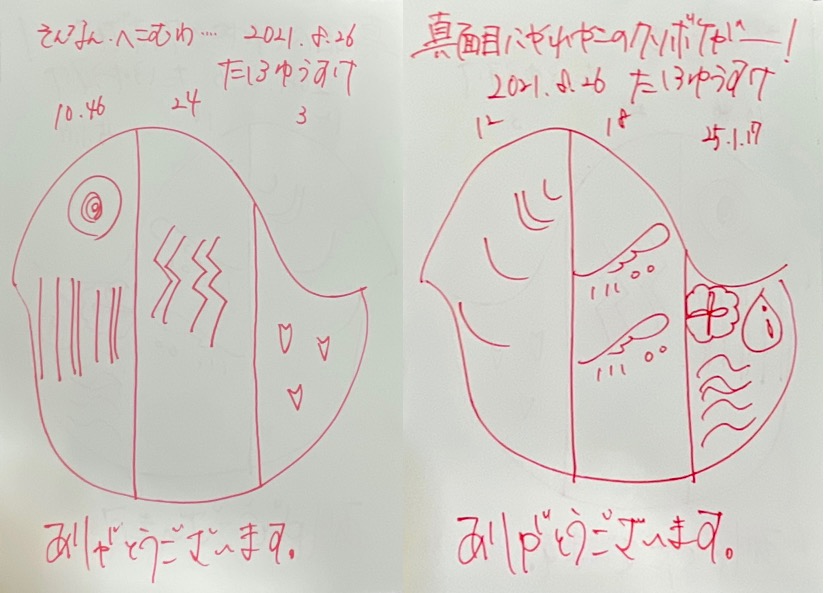 そんなもん、へこむわ…
2021.8.26
たしろゆうすけ
10.46
24
3
ありがとうございます。
真面目にやれやこのクソボケがー!
2021.8.26 たしろゆうすけ
12
18
25.1.17
ありがとうございます。